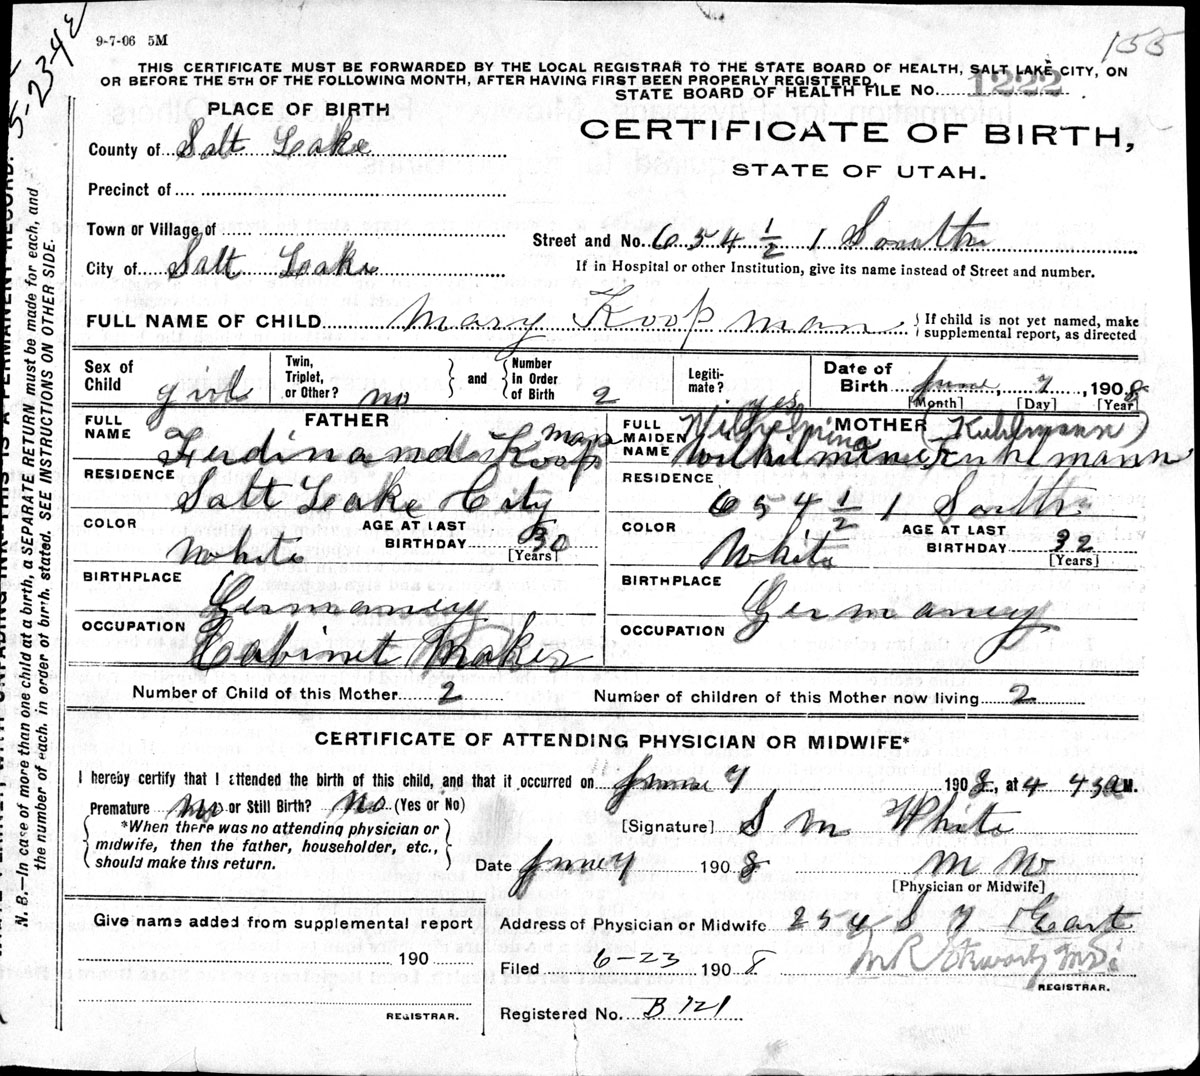 9-7-06 5M
155
5-23-42
THIS CERTIFICATE MUST BE FORWARDED BY THE LOCAL REGISTRAR TO THE STATE BOARD OF HEALTH, SALT LAKE CITY, ON
OR BEFORE THE 5TH OF THE FOLLOWING MONTH, AFTER HAVING FIRST BEEN PROPERLY REGISTERED.
STATE BOARD OF HEALTH FILE NO. 1222
PLACE OF BIRTH
CERTIFICATE OF BIRTH,
STATE OF UTAH.
County of Salt Lake
Precinct of
Town or Village of
Street and No. 654 1/2 1 South
City of Salt Lake
If in Hospital or other Institution, give its name instead of Street and number.
FULL NAME OF CHILD Mary Koopman { If child is not yet named, make
supplemental report, as directed
Sex of Child girl
Twin, Triplet, or Other? no } and { Number In Order of Birth 2
Legitimate? yes
Date of Birth June 7, 1908
[Month] [Day] [Year]
FATHER
FULL NAME Ferdinand Koopman
RESIDENCE
Salt Lake City
COLOR White
AGE AT LAST BIRTHDAY 30
[Years]
BIRTHPLACE
Germaney
OCCUPATION
Cabinet Maker
MOTHER
FULL MAIDEN NAME Wilhelmina (Kuhlmann)
Wilhilmine Kuhlmann
RESIDENCE
654 1/2 1 South
COLOR White
AGE AT LAST BIRTHDAY 32
[Years]
BIRTHPLACE
Germaney
OCCUPATION
Number of Child of this Mother 2
Number of children of this Mother now living 2
CERTIFICATE OF ATTENDING PHYSICIAN OR MIDWIFE*
I hereby certify that I attended the birth of this child, and that it occurred on June 7 1908, at 4 43 a M.
Premature no or Still Birth? no (Yes or No)
*When there was no attending physician or
midwife, then the father, householder, etc.,
should make this return.
[Signature] S M White
Date June 7 1908
M W
[Physician or Midwife]
Give name added from supplemental report
190
REGISTRAR.
Address of Physician or Midwife 254 S 7 East
Filed 6-23 1908
REGISTRAR.
Registered No. B 721
N. B.—In case of more than one child at a birth, a SEPARATE RETURN must be made for each, and
the number of each, in order of birth, stated. SEE INSTRUCTIONS ON OTHER SIDE.